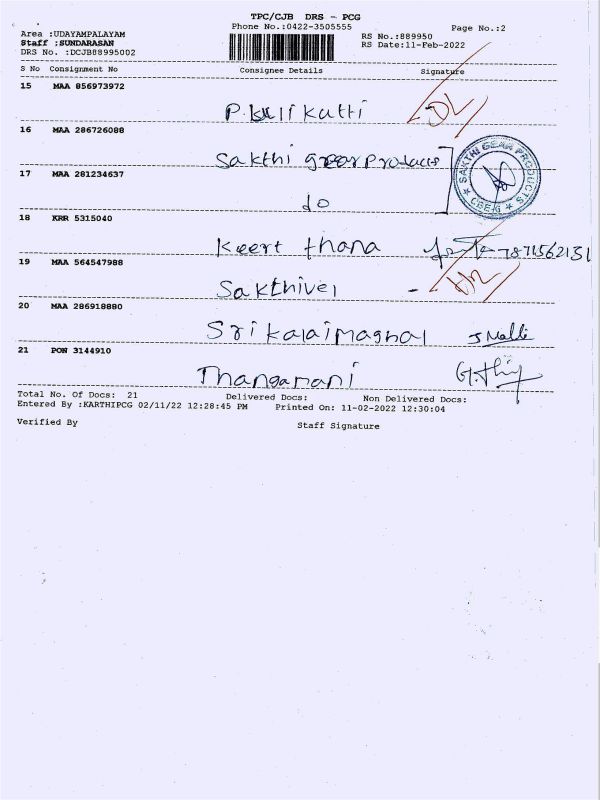 TPC/CJB DRS - PCG
Phone No.:0422-3505555
Page No.:2
Area :UDAYAMPALAYAM
RS No.:889950
Staff :SUNDARASAN
RS Date:11-Feb-2022
DRS No. :DCJB88995002
S No Consignment No Consignee Details Signature
15 MAA 856973972
P.kulikutti
16 MAA 286726088
Sakthi gear Products
17 MAA 281234637
do
SAKTHI GEAR PRODUCTS
18 KRR 5315040
Keert thana 7871562131
19 MAA 564547988
Sakthivel -
20 MAA 286918880
Srikalaimaghal J Malli
21 PON 3144910
Thangamani
Total No. Of Docs: 21 Delivered Docs: Non Delivered Docs:
Entered By :KARTHIPCG 02/11/22 12:28:45 PM Printed On: 11-02-2022 12:30:04
Verified By Staff Signature